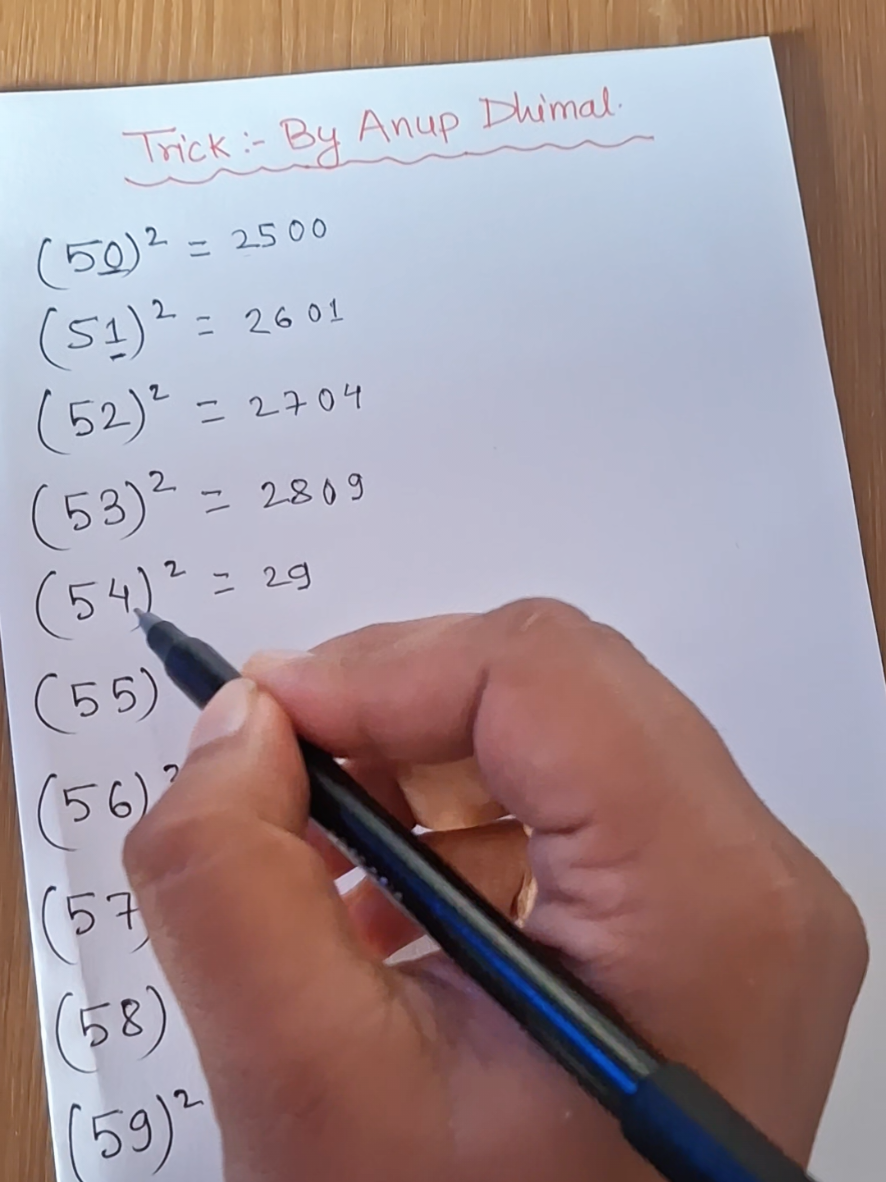 Trick :- By Anup Dhimal.
(50)² = 2500
(51)² = 2601
(52)² = 2704
(53)² = 2809
(54)² = 29
(55)
(56)²
(57)
(58)
(59)²